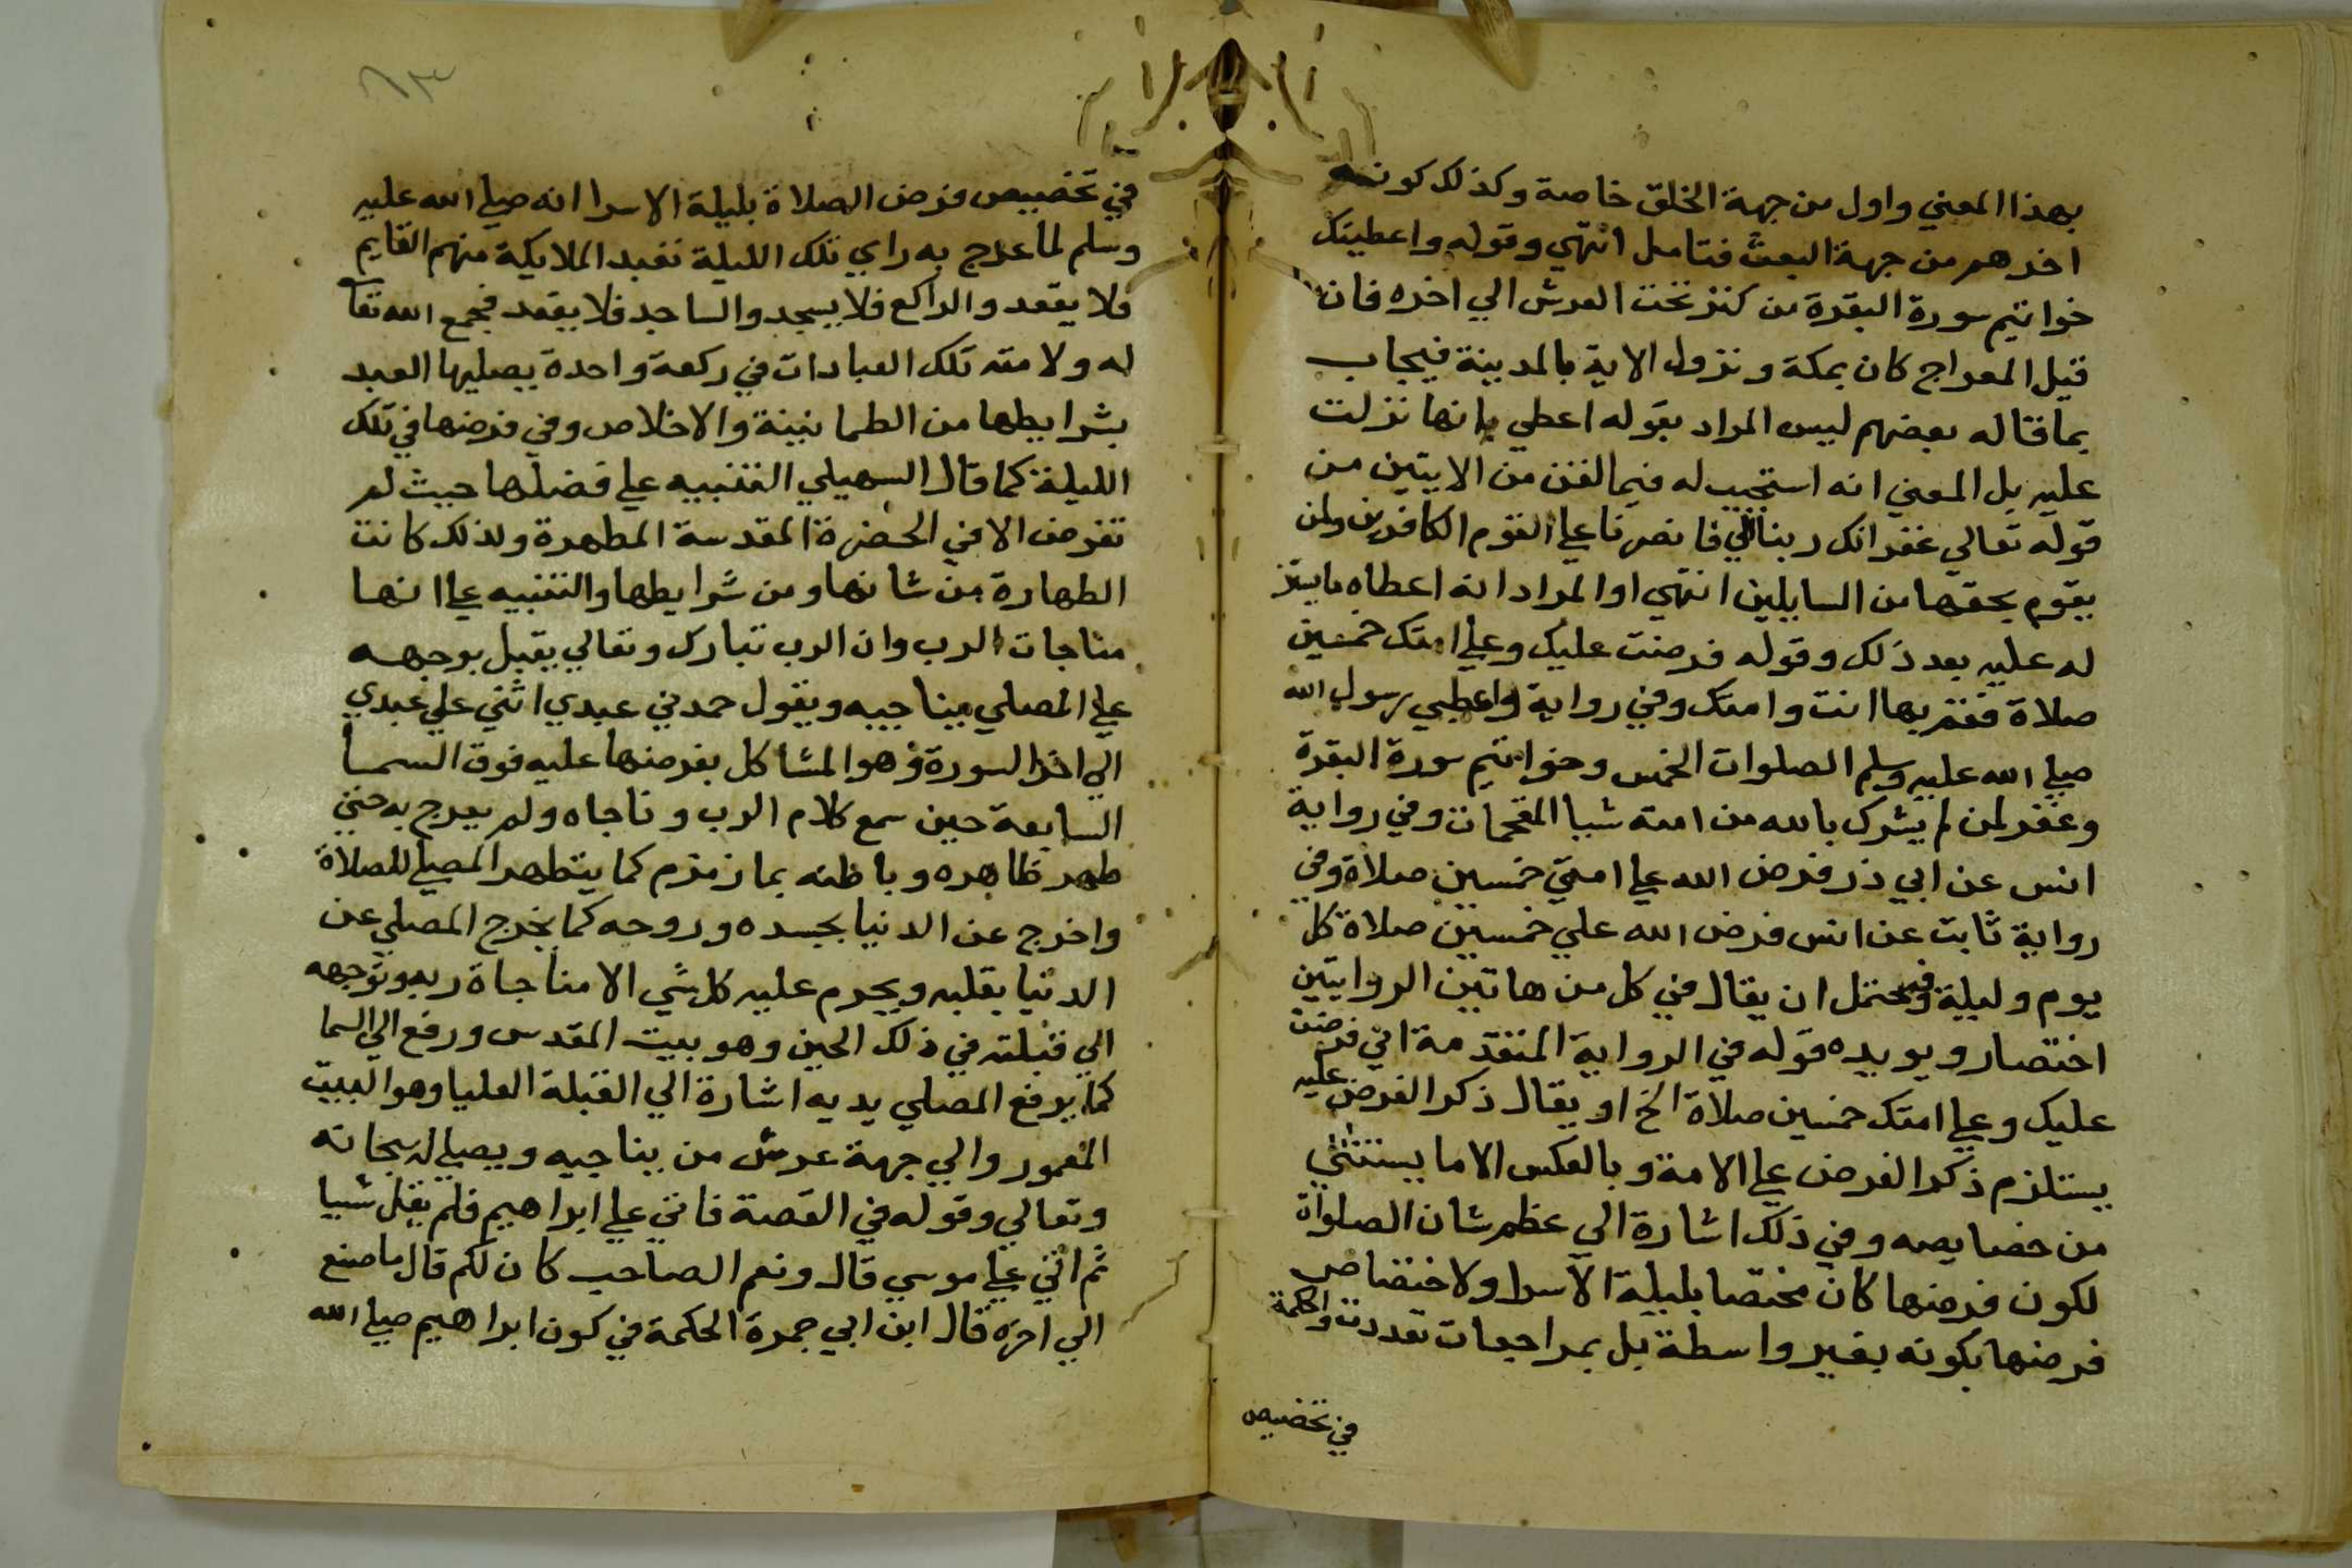 بهذا المعني واول من جهة الخلق خاصة وكذلك كونه
اخرهم من جهة البعث فتامل انتهي وقوله واعطيتك
خواتيم سورة البقرة من كنز تحت العرش الي اخره فان
قيل المعراج كان بمكة ونزول الاية بالمدينة فيجاب
بما قاله بعضهم ليس المراد بقوله اعطي بانها نزلت
عليه بل المعني انه استجيب له فيما لقن من الايتين من
قوله تعالي غفرانك ربنا الي فانصرنا علي القوم الكافرين ولمن
يقوم بحقها من السايلين انتهي او المراد انه اعطاه ما
له عليه بعد ذلك وقوله فرضت عليك وعلي امتك خمسين
صلاة فقم بها انت وامتك وفي رواية واعطي رسول الله
صلي الله عليه وسلم الصلوات الخمس وخواتيم سورة البقرة
وغفر لمن لم يشرك بالله من امته شيا المقحمات وفي رواية
انس عن ابي ذر فرض الله علي امتي خمسين صلاة وفي
رواية ثابت عن انس فرض الله علي خمسين صلاة كل
يوم وليلة فيحتمل ان يقال في كل من هاتين الروايتين
اختصار ويويده قوله في الرواية المتقدمة اني فرضت
عليك وعلي امتك خمسين صلاة الخ او يقال ذكر الفرض عليه
يستلزم ذكر الفرض علي الامة وبالعكس الا ما يستثني
من خصايصه وفي ذلك اشارة الي عظم شان الصلواة
لكون فرضها كان مختصا بليلة الاسرا ولاختصاص
فرضها بكونه بغير واسطة بل بمراجعات تعددت والحكمة
في تخصيص
٦٣
في تخصيص فرض الصلاة بليلة الاسرا انه صلي الله عليه
وسلم لما عرج به راي تلك الليلة تعبد الملايكة منهم القايم
فلا يقعد والراكع فلا يسجد والساجد فلا يقعد فجمع الله تعا
له ولامته تلك العبادات في ركعة واحدة يصليها العبد
بشرايطها من الطمانينة والاخلاص وفي فرضها في تلك
الليلة كما قال السهيلي التنبيه علي فضلها حيث لم
تفرض الا في الحضرة المقدسة المطهرة ولذلك كانت
الطهارة من شانها ومن شرايطها والتنبيه علي انها
مناجات الرب وان الرب تبارك وتعالي يقبل بوجهه
علي المصلي يناجيه ويقول حمدني عبدي اثني علي عبدي
الي اخر السورة وهو المشاكل بفرضها عليه فوق السما
السابعة حين سمع كلام الرب وناجاه ولم يعرج به حتي
طهر ظاهره وباطنه بما زمزم كما يتطهر المصلي للصلاة
واخرج عن الدنيا بجسده وروحه كما يخرج المصلي عن
الدنيا بقلبه ويحرم عليه كل شي الا مناجاة ربه وتوجهه
الي قبلته في ذلك الحين وهو بيت المقدس ورفع الي السما
كما يرفع المصلي يديه اشارة الي القبلة العليا وهو البيت
المعمور والي جهة عرش من يناجيه ويصلي له سبحانه
وتعالي وقوله في القصة فاتي علي ابراهيم فلم يقل شيا
ثم اتي علي موسي قال ونعم الصاحب كان لكم قال ما صنع
الي اخره قال ابن ابي جمرة الحكمة في كون ابراهيم صلي الله